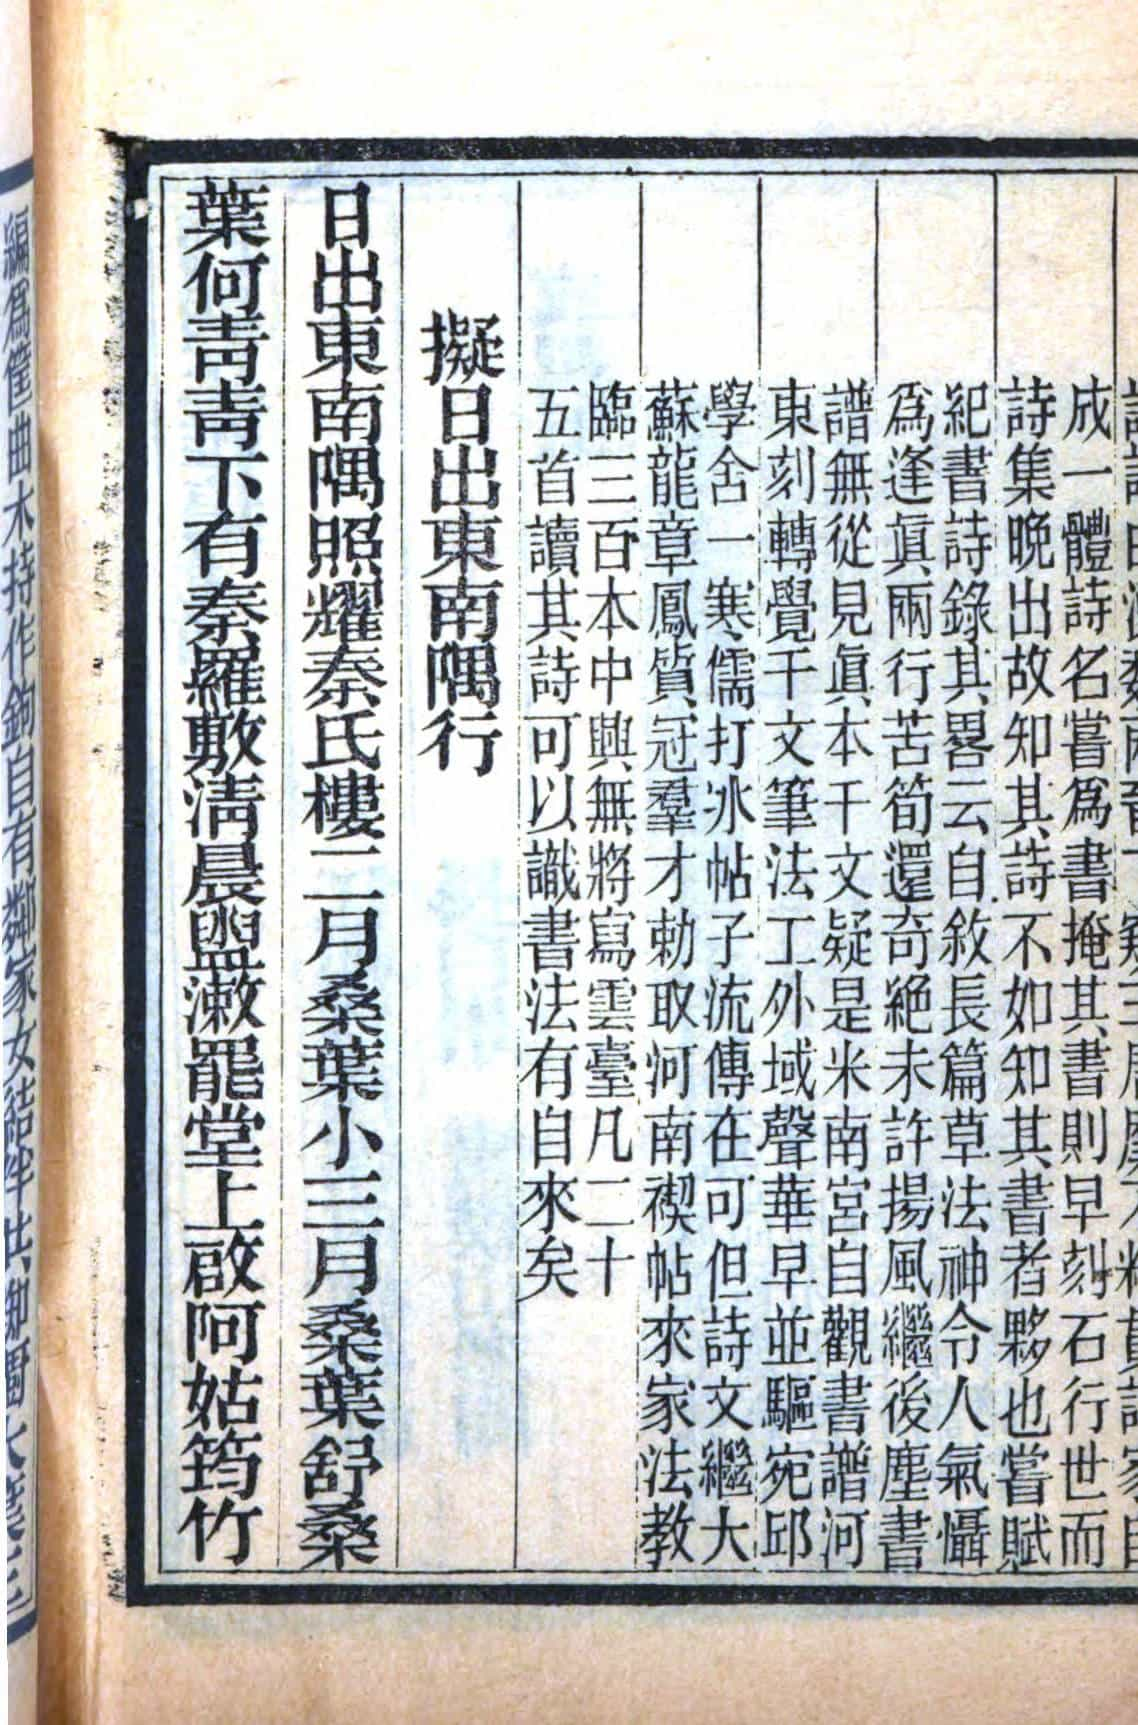 成一體詩名嘗爲書掩其書則早刻石行世而
詩集晚出故知其詩不如知其書者夥也嘗賦
紀書詩錄其畧云自敘長篇草法神令人氣懾
爲逢眞兩行苦筍還奇絕未許揚風繼後塵書
譜無從見眞本千文疑是米南宮自觀書譜河
東刻轉覺千文筆法工外域聲華早並驅宛邱
學舍一寒儒打氷帖子流傳在可但詩文繼大
蘇龍章鳳質冠羣才勅取河南禊帖來家法教
臨三百本中興無將寫雲臺凡二十
五首讀其詩可以識書法有自來矣
擬日出東南隅行
日出東南隅照耀秦氏樓二月桑葉小三月桑葉舒桑
葉何靑靑下有秦羅敷淸晨盥漱罷堂上啟阿姑筠竹
編爲筐曲木持作鉤自有鄰家女結伴共